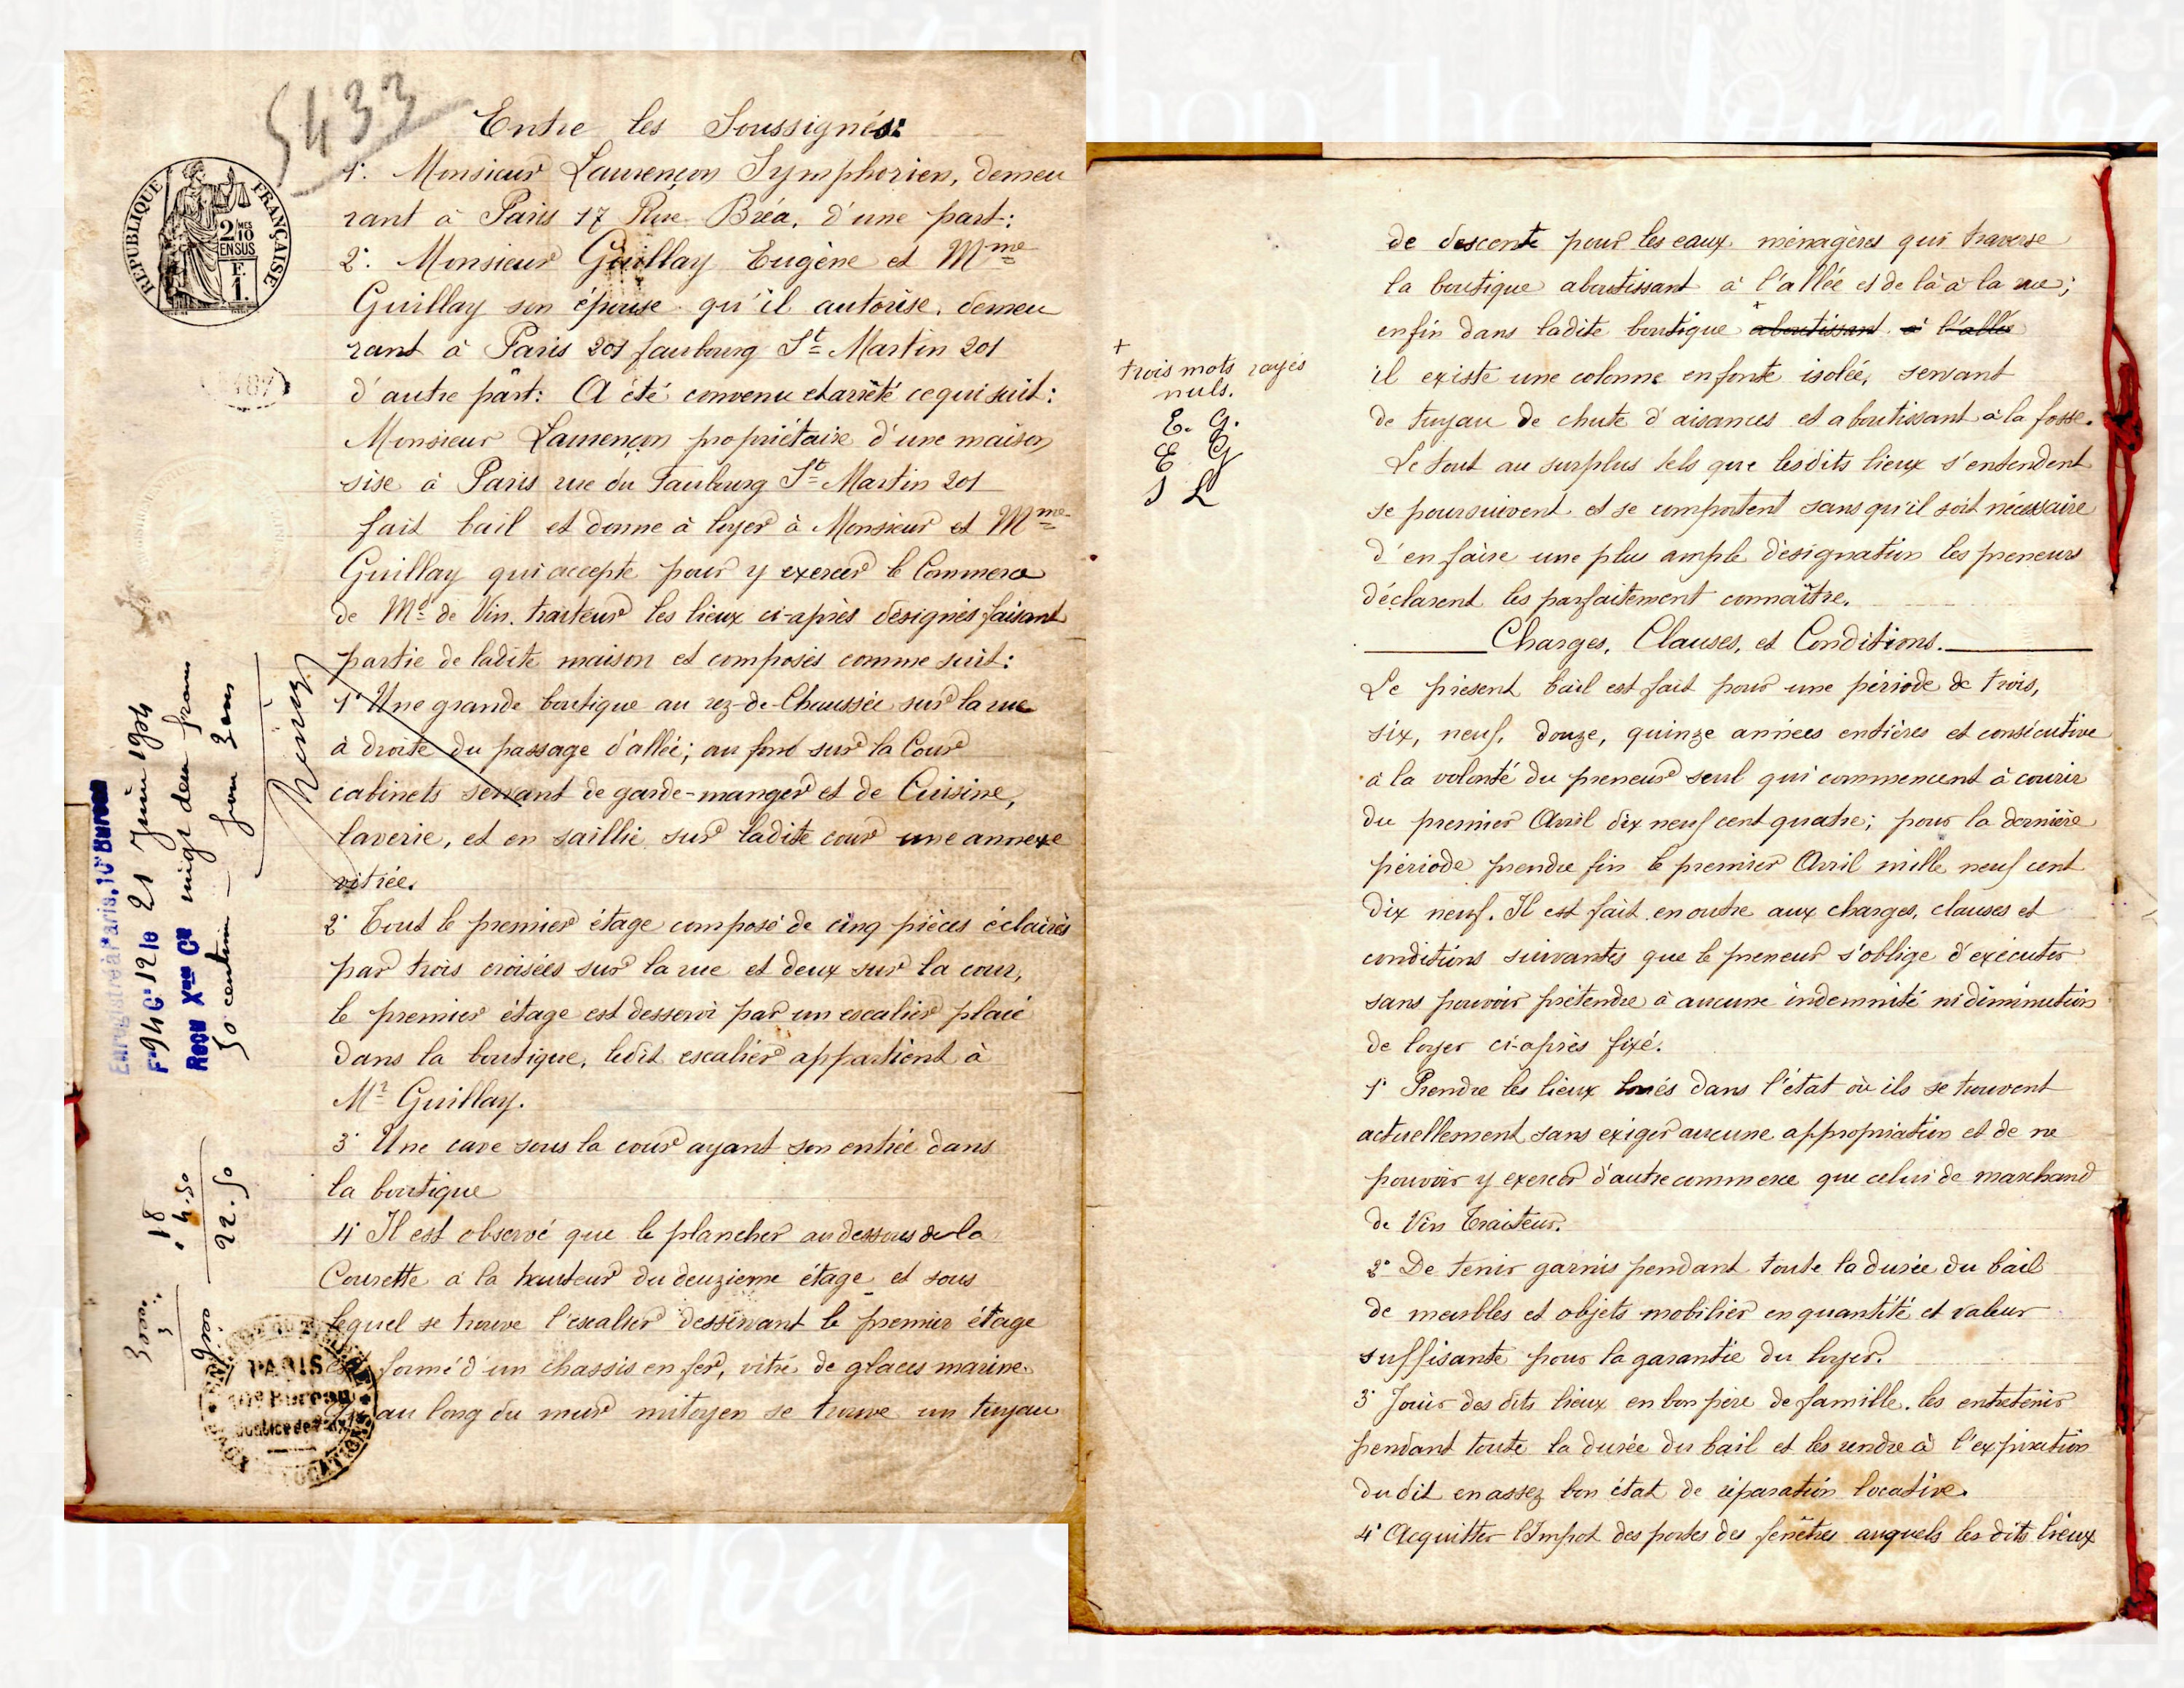 5433
Entre les Soussignés:
1°. Monsieur Laurençon Symphorien, demeu
rant à Paris 17 Rue Bréa, d'une part:
2°. Monsieur Guillay Eugène et Mme
Guillay son épouse qu'il autorise, demeu
rant à Paris 201 faubourg St Martin 201
d'autre part: A été convenu et arrêté ce qui suit:
Monsieur Laurençon propriétaire d'une maison
sise à Paris rue du Faubourg St Martin 201
fait bail et donne à loyer à Monsieur et Mme
Guillay qui accepte pour y exercer le Commerce
de Md de Vin. traiteur les lieux ci-après désignés faisant
partie de ladite maison et composés comme suit:
1° Une grande boutique au rez-de-Chaussée sur la rue
à droite du passage d'allée; au fond sur la Cour
cabinets servant de garde-manger et de Cuisine,
laverie, et en saillie sur ladite cour une annexe
vitrée.
2° Tout le premier étage composé de cinq pièces éclairés
par trois croisées sur la rue et deux sur la cour,
le premier étage est desservi par un escalier placé
dans la boutique, ledit escalier appartient à
Mr Guillay.
3° Une cave sous la cour ayant son entrée dans
la boutique
4° Il est observé que le plancher au dessous de la
Courette à la hauteur du deuzieme étage et sous
lequel se trouve l'escalier desservant le premier étage
est formé d'un chassis en fer, vitré de glaces marine
au long du mur mitoyen se trouve un tuyau
REPUBLIQUE FRANÇAISE
2 MES
10
EN SUS
F.
1.
Enregistré à Paris, 10e Bureau
Fo 94 Ce 12 le 21 Juin 1904
Reçu Xmes Ce vingt deux francs
50 centimes
pour 3 ans
18
4.50
22.50
3000
3
9000
PARIS
10e Bureau
de descente pour les eaux ménagères qui traverse
la boutique aboutissant à l'allée et de là à la rue;
enfin dans ladite boutique + aboutissant à l'allée
il existe une colonne en fonte isolée, servant
de tuyau de chute d'aisances et aboutissant à la fosse.
Le tout au surplus tels que lesdits lieux s'entendent
se poursuivent et se comportent sans qu'il soit nécessaire
d'en faire une plus ample désignation les preneurs
déclarent les parfaitement connaître.
+
trois mots rayés
nuls.
E. G.
E G
S L
Charges, Clauses, et Conditions.
Le présent bail est fait pour une période de trois,
six, neuf, douze, quinze années entières et consécutive
à la volonté du preneur seul qui commencent à courir
du premier Avril dix neuf cent quatre; pour la dernière
période prendre fin le premier Avril mille neuf cent
dix neuf. Il est fait en outre aux charges, clauses et
conditions suivantes que le preneur s'oblige d'exécuter
sans pouvoir prétendre à aucune indemnité ni diminution
de loyer ci-après fixé.
1° Prendre les lieux loués dans l'état où ils se trouvent
actuellement sans exiger aucune appropriation et de ne
pouvoir y exercer d'autre commerce que celui de marchand
de Vin Traiteur.
2° De tenir garnis pendant toute la durée du bail
de meubles et objets mobilier en quantité et valeur
suffisante pour la garantie du loyer.
3° Jouir des dits lieux en bon père de famille. les entretenir
pendant toute la durée du bail et les rendre à l'expiration
du dit en assez bon état de réparation locative.
4° Acquitter l'Impot des portes des fenêtres auquels les dits lieux